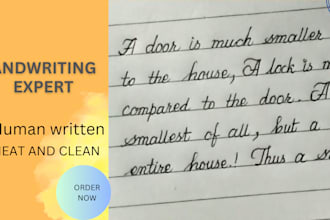 ANDWRITING
EXPERT
Human written
NEAT AND CLEAN
ORDER
NOW
A door is much smaller
to the house, A lock is m
compared to the door. A
smallest of all, but a
entire house! Thus a s